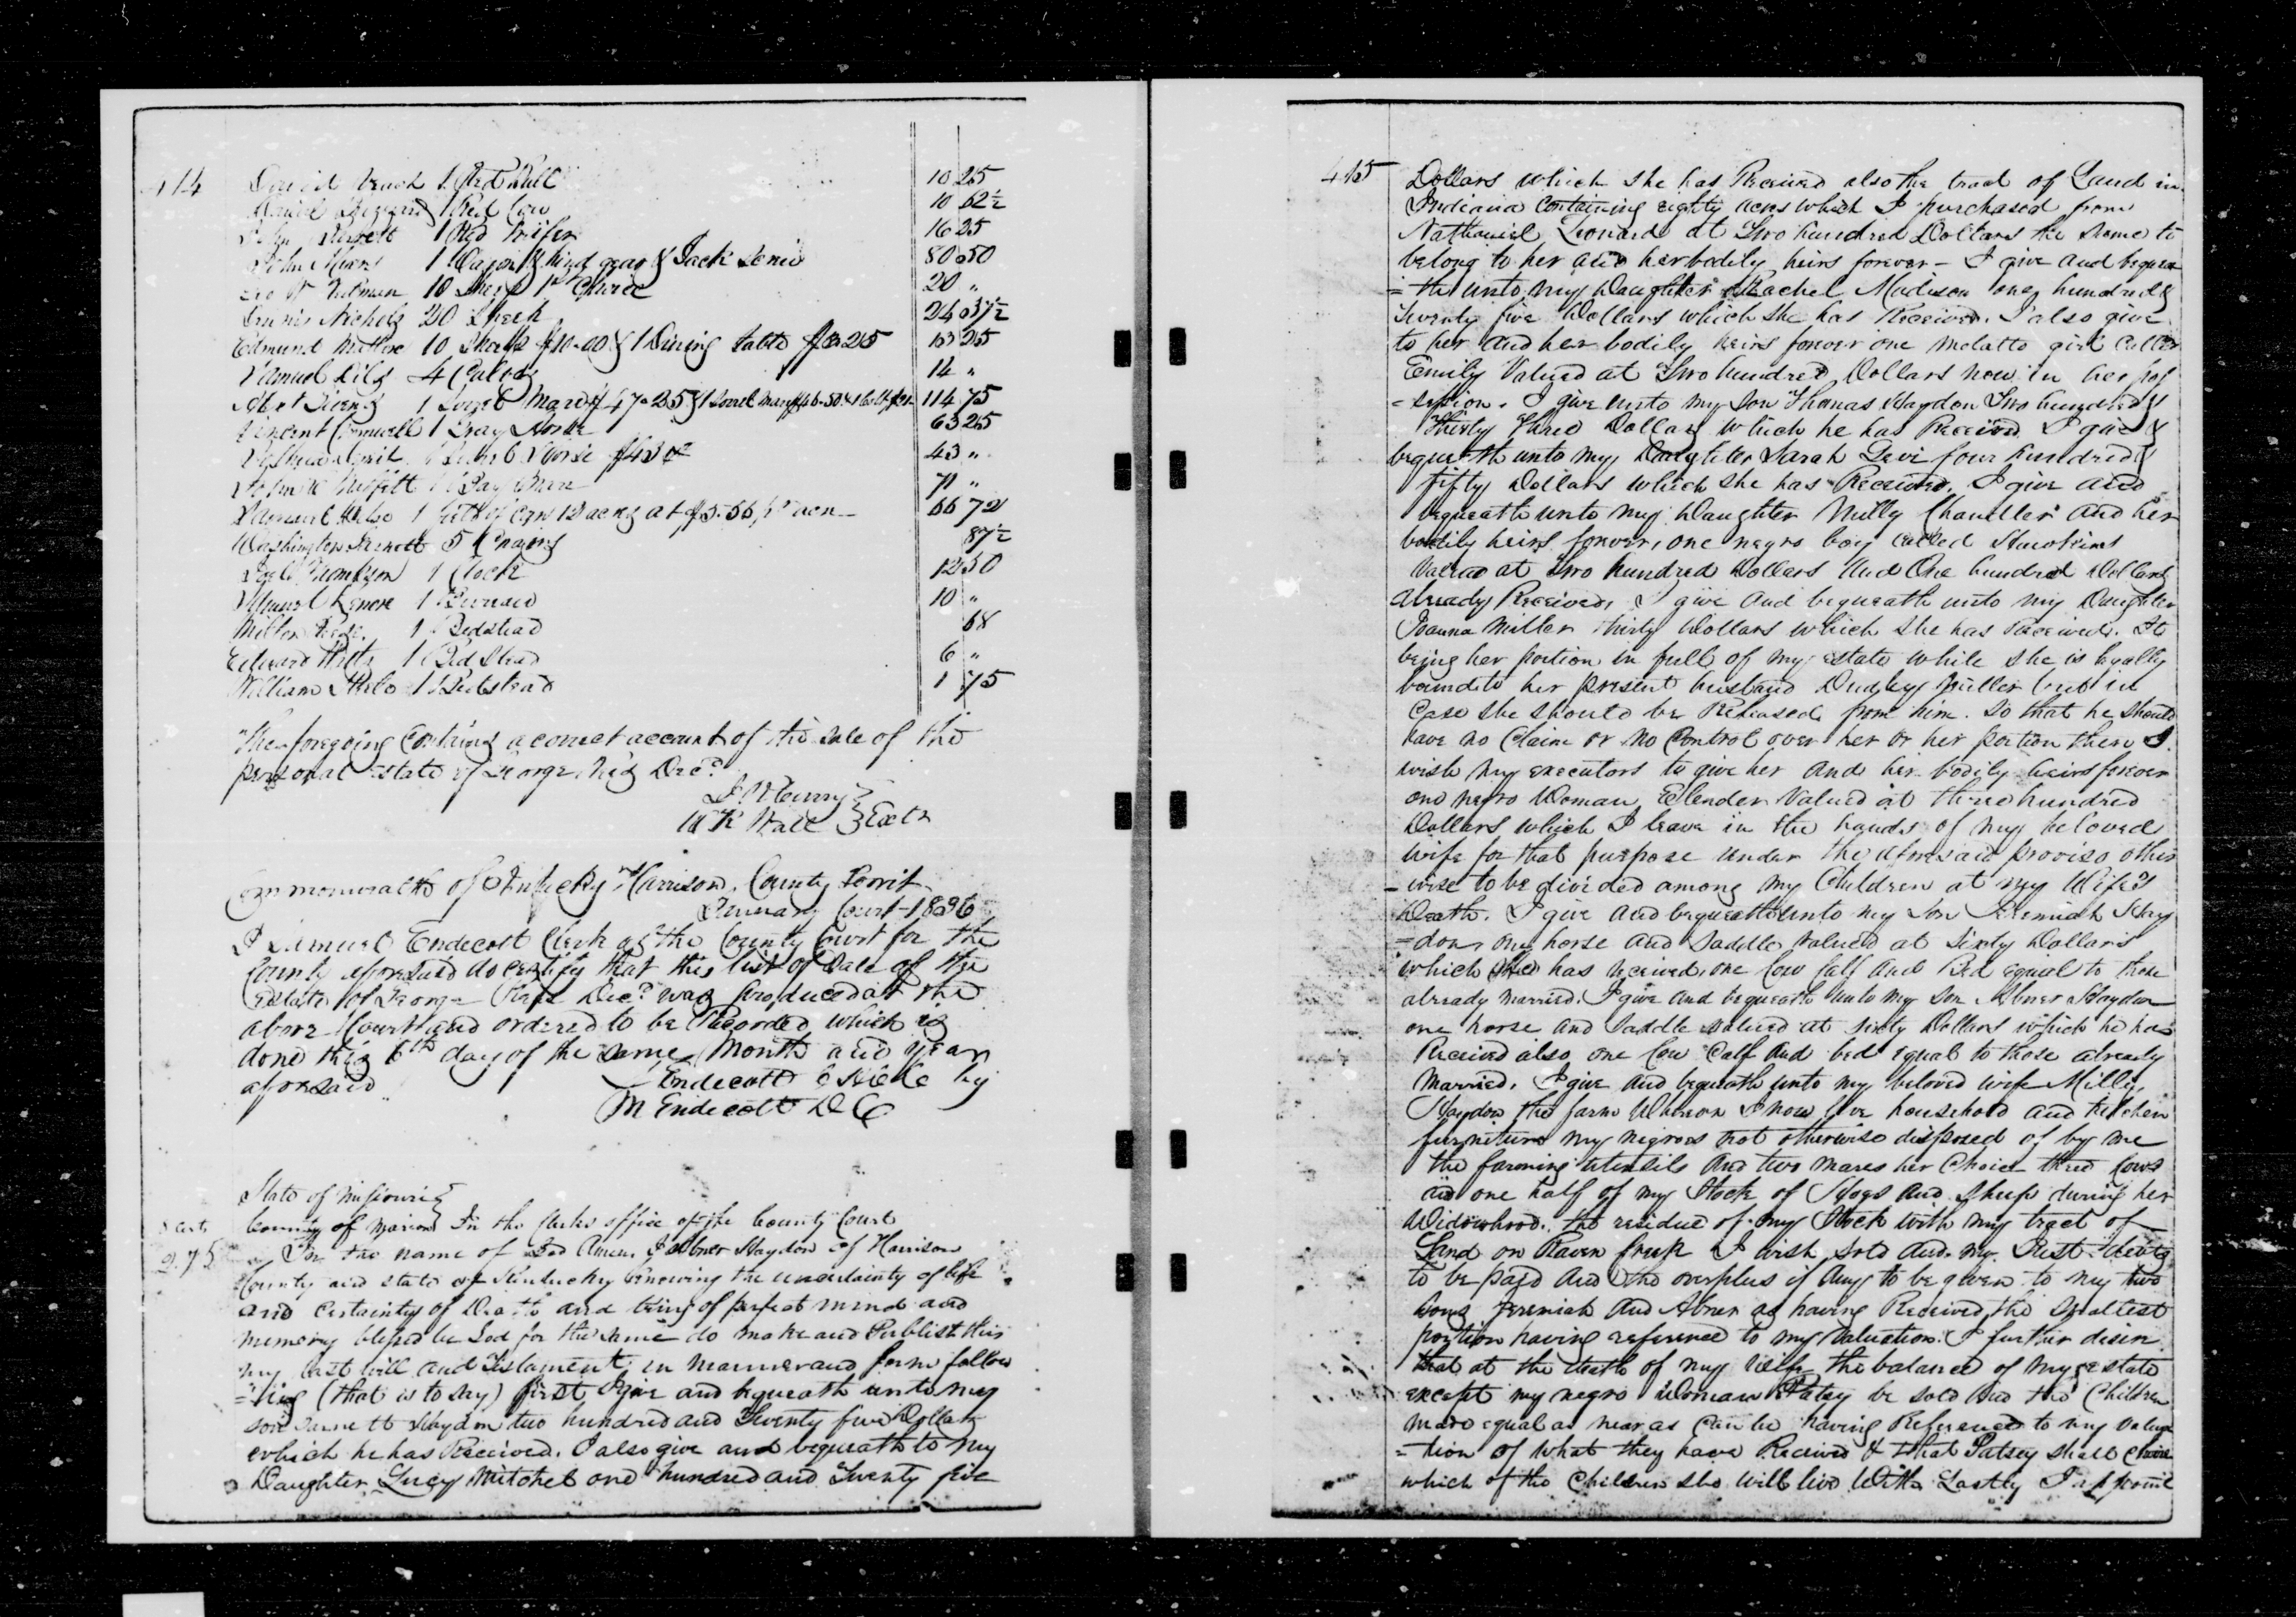 414
David Veach 1 Red Bull 10 25
1 Red Cow 10 62½
John 1 Red Heifer 16 25
John 1 Wagon & hind gear & Jack Screw 80 50
10 Sheep 1st Choice 20 "
Nichols 20 Sheep 24 37½
Edmund 10 Sheep $10.00 & 1 Dining Table $3.25 13 25
Samuel 4 Calves 14 "
1 Sorrel Mare $47.25 & 1 Sorrel Mare $46.50 114 75
Vincent Cromwell 1 Gray Horse 63 25
Horse $43 43 "
John 1 Bay Mare 71 "
Samuel 1 field of Corn 12 acres at $5.56 pr acre 66 72
Washington 5 Chairs 87½
Thompson 1 Clock 12 50
Samuel 1 Bureau 10 "
Milton 1 Bedstead 68
Edward 1 Bed Stead 6 "
William 1 Bedstead 1 75
The foregoing Contains a correct account of the sale of the
personal Estate of George Decd
Exctr
Commonwealth of Kentucky Harrison County Towit
January Court 1836
I Samuel Endecott Clerk of the County Court for the
County aforesaid do certify that this list of Sale of the
Estate of George Decd was produced at the
above Court and ordered to be Recorded which is
done this 6th day of the same Month and year
aforesaid
Endecott C H C C by
M Endecott D C
State of Missouri
County of Marion In the Clerks office of the County Court
2.75 In the name of God Amen I Abner Haydon of Harrison
County and state of Kentucky knowing the uncertainty of life
and certainty of Death and being of perfect mind and
memory blessed be God for the same do make and Publish this
my last will and Testament in manner and form follow
=ing (that is to say) first I give and bequeath unto my
son Haydon two hundred and Twenty five Dollars
which he has Received. I also give and bequeath to my
Daughter Lucy Mitchel one hundred and Twenty five
415
Dollars which she has Received also the tract of Land in
Indiana Containing eighty acres which I purchased from
Nathaniel Leonard at Two hundred Dollars the same to
belong to her and her bodily heirs forever – I give and beque
=the unto my Daughter Rachel Madison one hundred &
Twenty five Dollars which she has Received. I also give
to her and her bodily heirs forever one molatto girl Called
Emily Valued at Two hundred Dollars now in her pos
=session. I give unto my son Thomas Haydon Two hundred &
Thirty three Dollars which he has Received I give &
bequeath unto my Daughter Sarah Levi four hundred &
fifty Dollars which she has Received. I give and
bequeath unto my Daughter Milly Chandler and her
bodily heirs forever, one negro boy called
Valued at Two hundred Dollars and One hundred Dollars
already Received, I give and bequeath unto my Daughter
Joanna Miller thirty Dollars which she has Received. It
being her portion in full of my estate while she is legally
bound to her present husband Dudley Miller but in
Case she should be Released from him. So that he should
have no Claim or no Control over her or her portion then I
wish my executors to give her and her bodily heirs forever
one negro Woman Elender Valued at three hundred
Dollars which I leave in the hands of my beloved
wife for that purpose under the aforesaid proviso other
=wise to be divided among my Children at my Wife's
Death. I give and bequeath unto my Son Jeremiah Hay
=don, one horse and saddle valued at sixty Dollars
which he has received, one Cow Calf and Bed equal to those
already married. I give and bequeath unto my son Abner Haydon
one horse and saddle valued at sixty Dollars which he has
Received also one Cow Calf and bed equal to those already
Married. I give and bequeath unto my beloved wife Milly
Haydon the farm Whereon I now live household and kitchen
furniture my negroes not otherwise disposed of by me
the farming utensils and two mares her Choice three Cows
and one half of my Stock of Hogs and Sheep during her
Widowhood. The residue of my Stock with my tract of
Land on Raven Creek I wish sold and my Just debts
to be paid and the overplus if any to be given to my two
sons Jeremiah and Abner as having Received the smallest
portion having reference to my Valuation. I further desire
that at the death of my Wife the balance of my estate
except my negro Woman Patsy be sold and the Children
made equal as near as can be having Reference to my Valua
=tion of what they have Received & that Patsey shall chuse
which of the Children she will live With Lastly I appoint